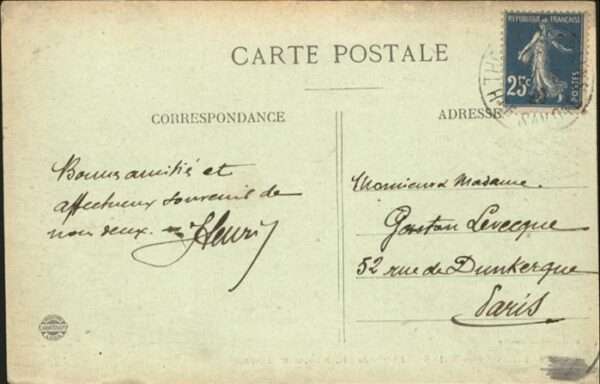 CARTE POSTALE
REPUBLIQUE FRANÇAISE
25c
POSTES
CORRESPONDANCE
ADRESSE
Bonne amitié et
affectueux souvenir de
nous deux. Henry
Monsieur & Madame.
Gaston Levecque
52 rue de Dunkerque
Paris